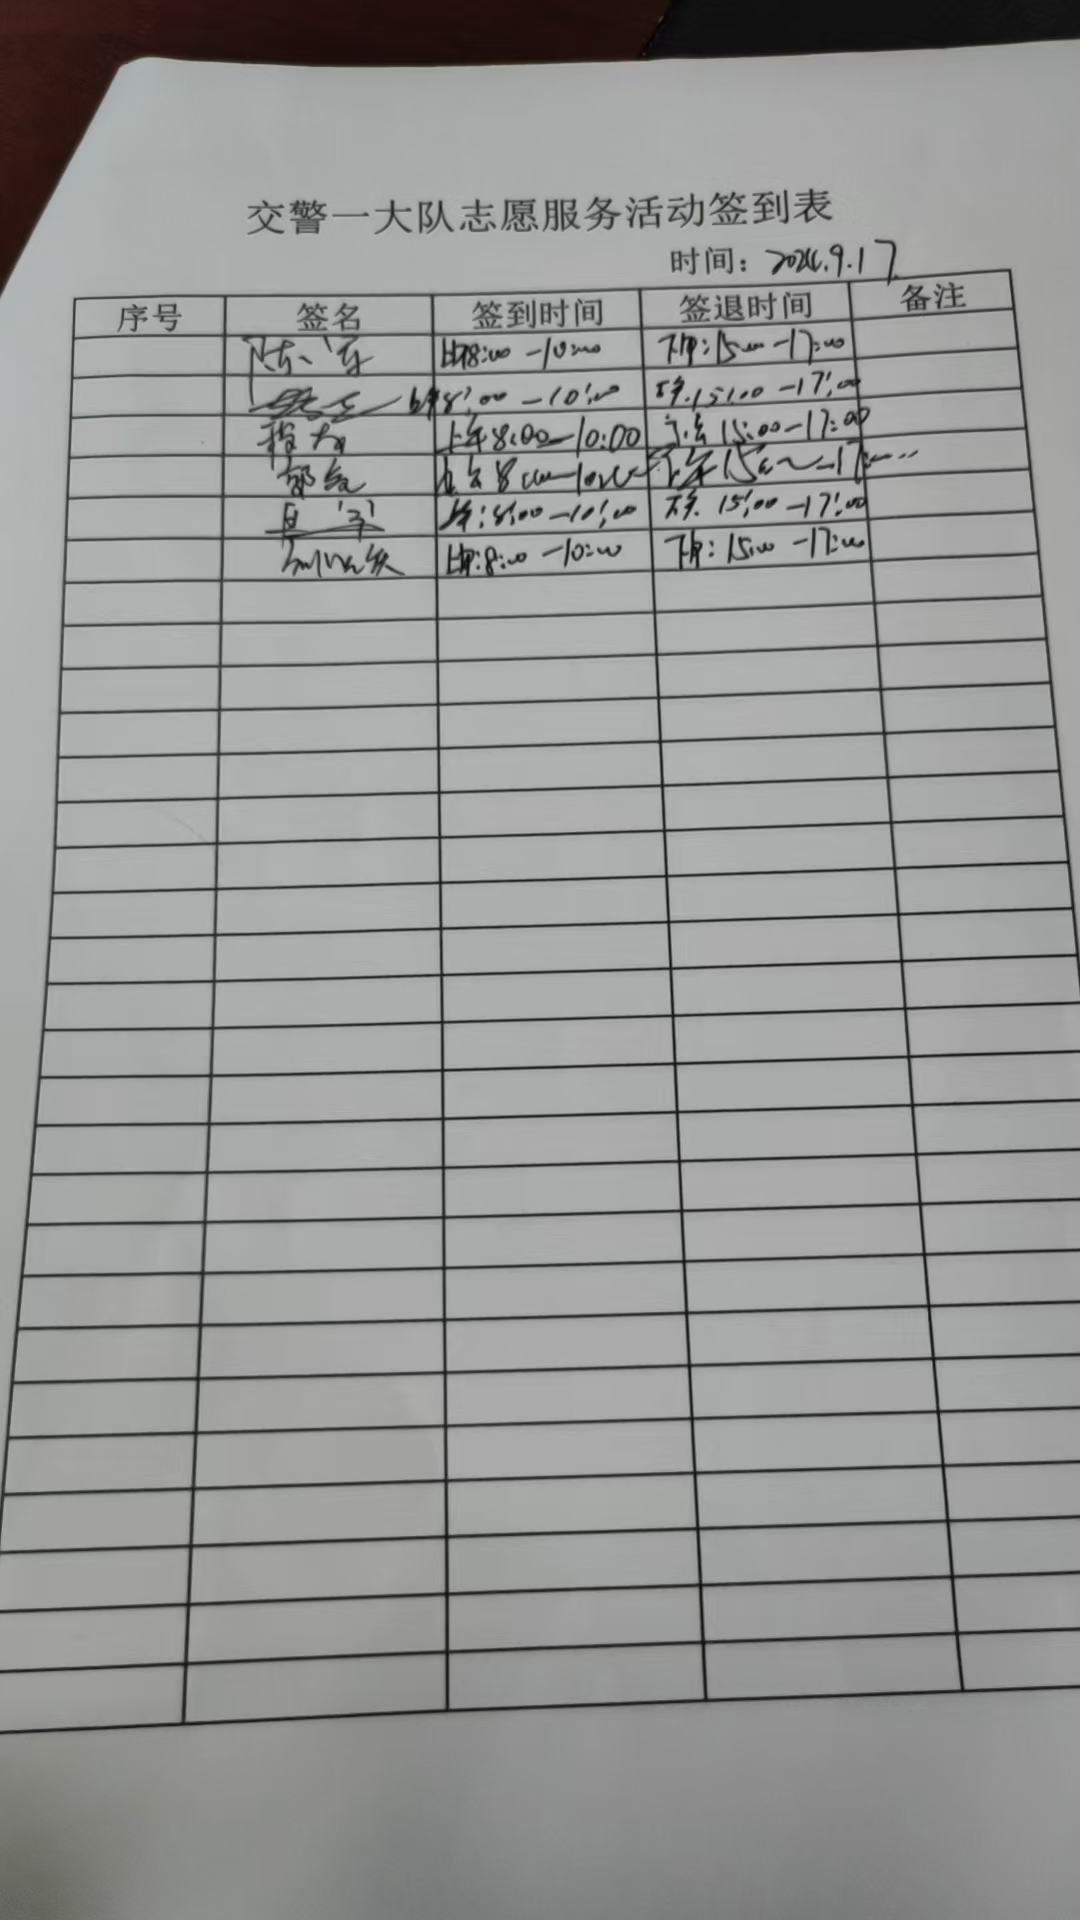 交警一大队志愿服务活动签到表
时间：2024.9.17
序号 签名 签到时间 签退时间 备注
上午8:00-10:00 下午:15:00-17:00
上午8:00-10:00 下午.15:00-17:00
上午8:00-10:00 下午15:00-17:00
上午8:00-10:00 下午15:00-17:00
上午:8:00-10:00 下午.15:00-17:00
上午:8:00-10:00 下午:15:00-17:00